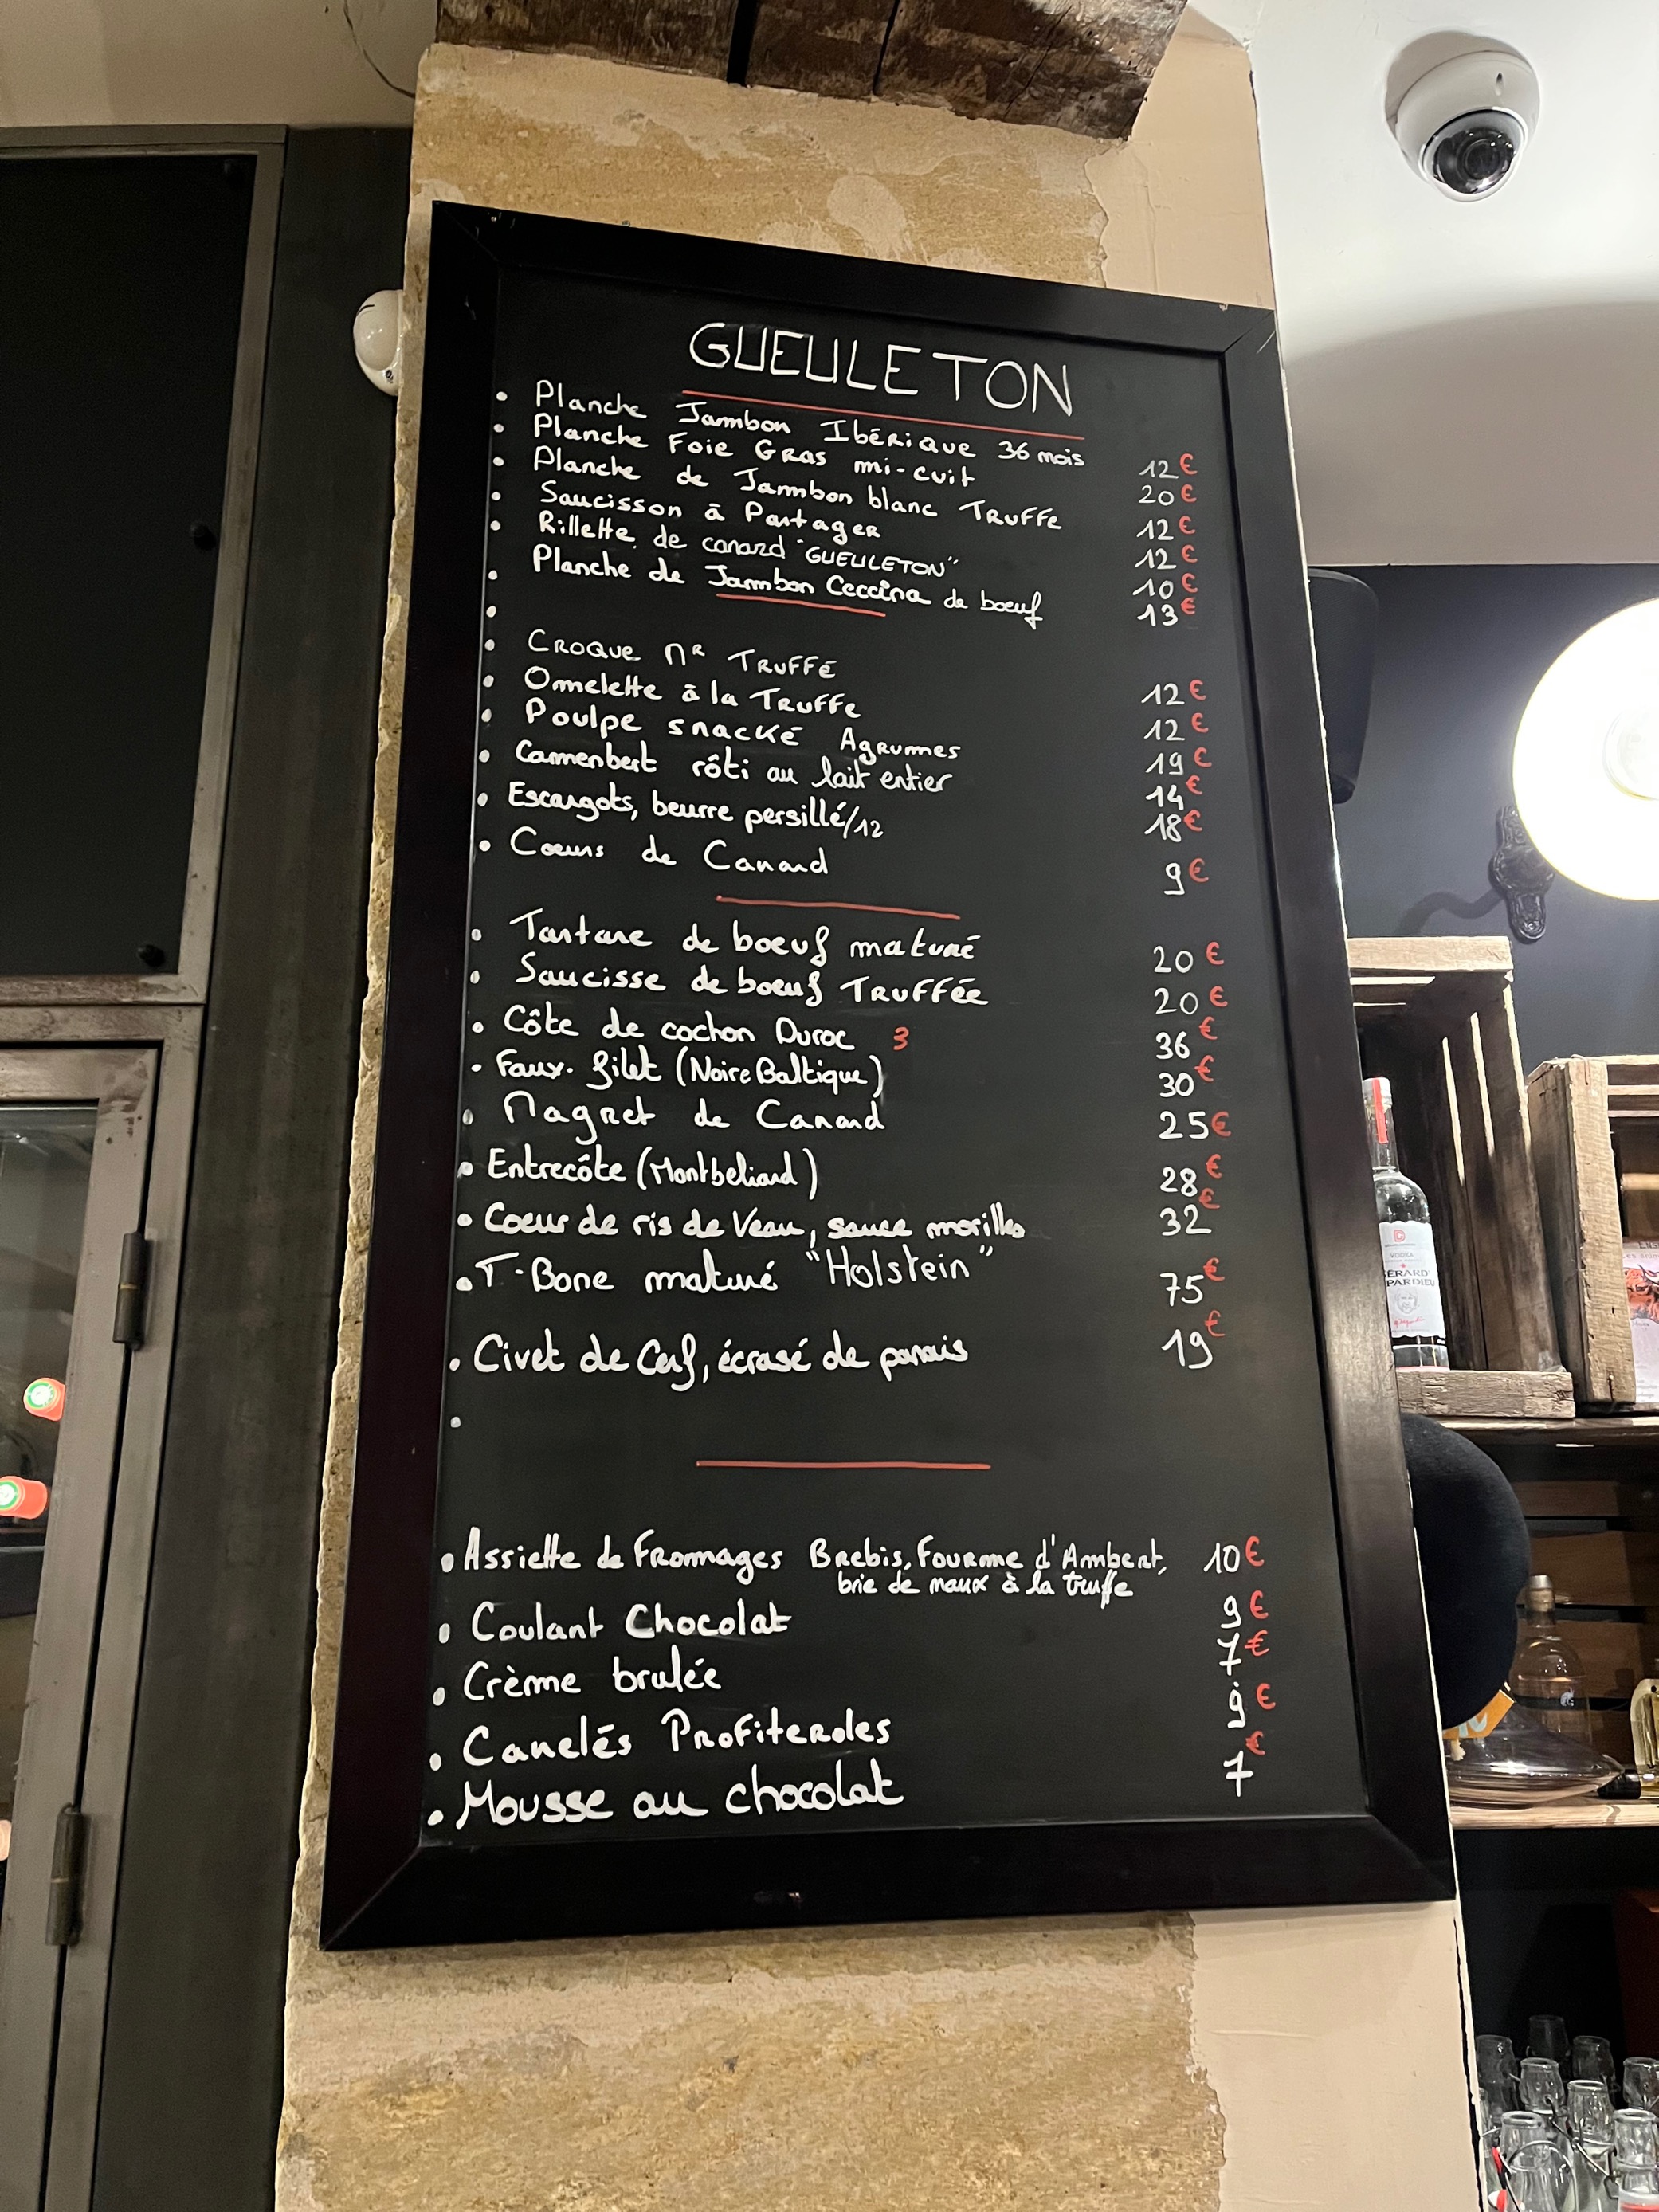 GUEULETON
• Planche Jambon Ibérique 36 mois 12€
• Planche Foie Gras mi-cuit 20€
• Planche de Jambon blanc Truffe 12€
• Saucisson à Partager 12€
• Rillette de canard "GUEULETON" 10€
• Planche de Jambon Ceccina de boeuf 13€
•
• Croque Mr Truffé 12€
• Omelette à la Truffe 12€
• Poulpe snacké Agrumes 19€
• Camenbert rôti au lait entier 14€
• Escargots, beurre persillé/12 18€
• Coeurs de Canard 9€
• Tartare de boeuf maturé 20€
• Saucisse de boeuf Truffée 20€
• Côte de cochon Duroc 3 36€
• Faux-filet (Noire Baltique) 30€
• Magret de Canard 25€
• Entrecôte (Montbeliard) 28€
• Coeur de ris de Veau, sauce morilles 32€
• T-Bone maturé "Holstein" 75€
• Civet de Cerf, écrasé de panais 19€
•
• Assiette de Fromages Brebis, Fourme d'Ambert, 10€
brie de maux à la truffe
• Coulant Chocolat 9€
• Crème brulée 7€
• Canelés Profiteroles 9€
• Mousse au chocolat 7€
VODKA
GÉRARD